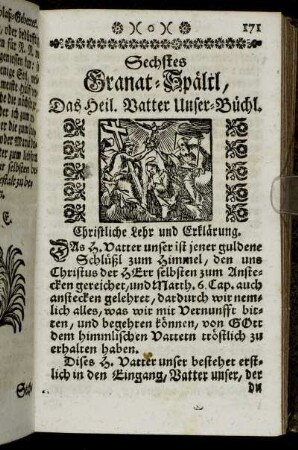 171
Sechstes
Granat-Spältl,
Das Heil. Vatter Unser-Büchl.
Christliche Lehr und Erklärung.
DAs H. Vatter unser ist jener guldene
Schlüßl zum Himmel, den uns
Christus der HErr selbsten zum Anste-
cken gereichet, und Matth. 6. Cap. auch
anstecken gelehret, dardurch wir nem-
lich alles, was wir mit Vernunfft bit-
ten, und begehren können, von GOtt
dem himmlischen Vattern tröstlich zu
erhalten haben.
Dises H. Vatter unser bestehet erst-
lich in den Eingang, Vatter unser, der
du